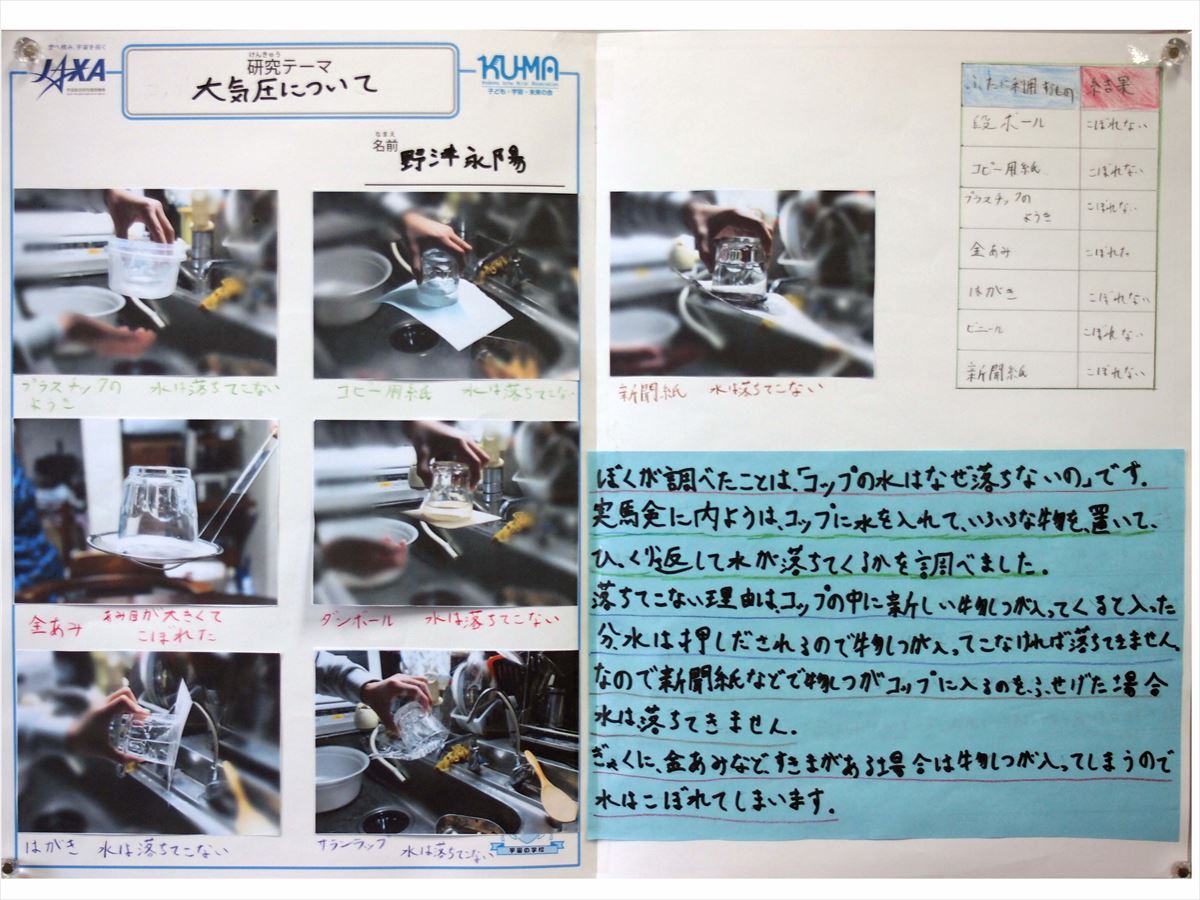 空へ挑み、宇宙を拓く
JAXA
けんきゅう
研究テーマ
大気圧について
KU-MA
子ども・宇宙・未来の会
なまえ
名前
野津永陽
プラスチックの 水は落ちてこない
ようき
コピー用紙 水は落ちてこない
金あみ あみ目が大きくて
こぼれた
ダンボール 水は落ちてこない
はがき 水は落ちてこない
サランラップ 水は落ちてこない
宇宙の学校
新聞紙 水は落ちてこない
ふたに利用するもの 結果
段ボール こぼれない
コピー用紙 こぼれない
プラスチックの
ようき こぼれない
金あみ こぼれた
はがき こぼれない
ビニール こぼれない
新聞紙 こぼれない
ぼくが調べたことは、「コップの水はなぜ落ちないの」です。
実験に内ようは、コップに水を入れて、いろいろな物を、置いて、
ひっくり返して水が落ちてくるかを調べました。
落ちてこない理由は、コップの中に新しい物しつが入ってくると入った
分水は押しだされるので物しつが入ってこなければ落ちてきません。
なので新聞紙などで物しつがコップに入るのを、ふせげた場合
水は、落ちてきません。
ぎゃくに、金あみなど、すきまがある場合は物しつが入ってしまうので
水はこぼれてしまいます。